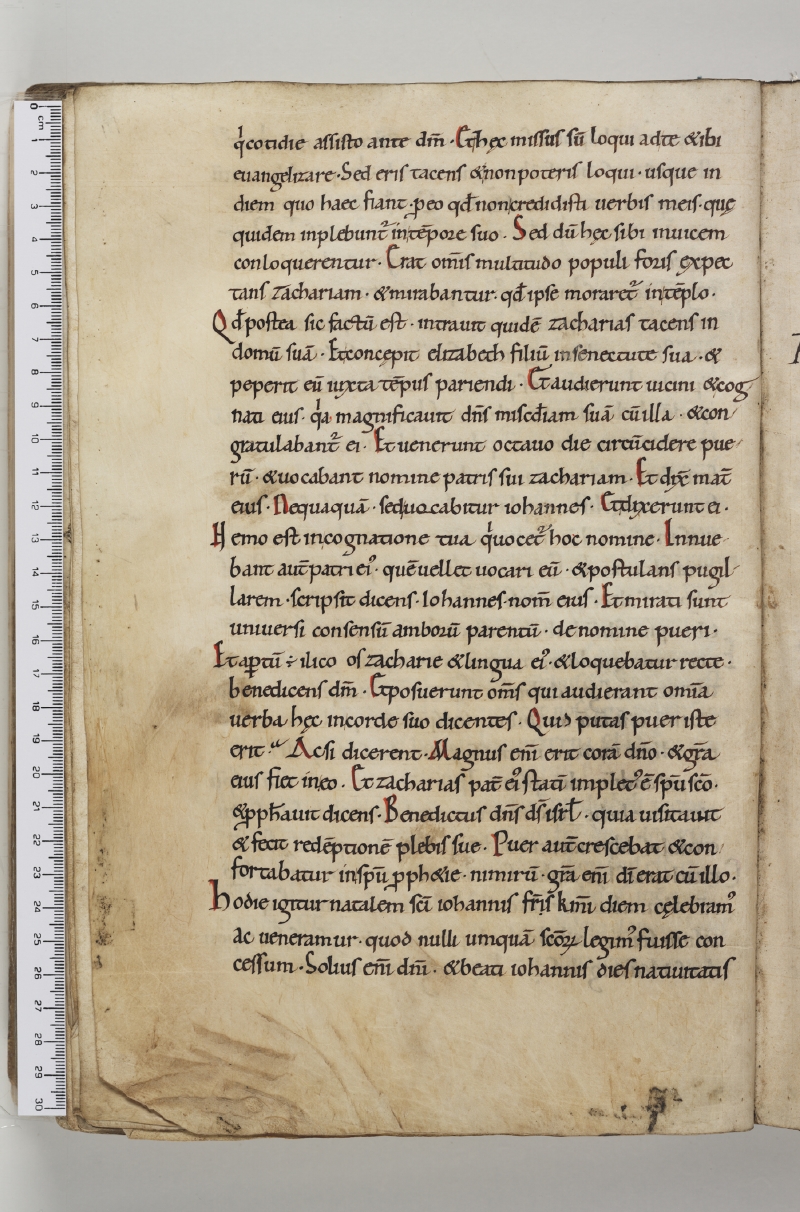 qͥ cotidie assisto ante dm̄ · Et hęc missus sū loqui ad te & ibi
euangelizare · Sed eris tacens & non poteris loqui · usque in
diem quo haec fiant · ꝓ eo qđ non credidisti uerbis meis · quę
quidem inplebunt᷑ in tēpore suo · Sed dū hęc sibi inuicem
conloquerentur · Erat om̄is multitudo populi foris expec
tans zachariam · & mirabantur · qđ ipse moraret᷑ in tēplo ·
Qđ postea sic factū est · intrauit quidē zacharias tacens in
domū suā · Et concepit elizabeth filiū in senectute sua · &
peperit eū iuxta tēpus pariendi · Et audierunt uicini & cog
nati eius · qͥa magnificauit dn̄s misc̄điam suā cū illa · & con
gratulabant᷑ ei · Et uenerunt octauo die circūcidere pue
rū · & uocabant nomine patris sui zachariam · Et dix̄ mat̄
eius · Nequaquā · sed uocabitur iohannes · Et dixerunt ei ·
Nemo est in cognatione tua qͥ uocet᷑ hoc nomine · Innue
bant aut̄ patri eiꝰ · quē uellet uocari eū · & postulans pugil
larem · scripsit dicens · Iohannes · nom̄ eius · Et mirati sunt
uniuersi consensū amborū parentū · de nomine pueri ·
Et aꝑtū ÷ ilico os zacharie & lingua eiꝰ · & loquebatur recte ·
benedicens dm̄ · Et posuerunt om̄s qui audierant om̄ia
uerba hęc in corde suo dicentes · Quid putas puer iste
erit · Ac si dicerent · Magnus eni̅ erit corā dn̄o · & gr̄a
eius fiet in eo · Et zacharias pat̄ eiꝰ statī implet᷑ ē sp̄u sc̄o ·
& ꝓph̄auit dicens · Benedictus dn̄s ds̄ isrł · quia uisitauit
& fecit redēptionē plebis sue · Puer aut̄ crescebat & con
fortabatur in sp̄u ꝓph&ie · nimirū · gr̄a eni̅ dī erat cū illo ·
hodie igitur natalem sc̄i iohannis fr̄is km̄i diem celebramꝰ
ac ueneramur · quod nulli umquā sc̄oꝝ legimꝰ fuisse con
cessum · Solius eni̅ dn̄i · & beati iohannis dies natiuitatis